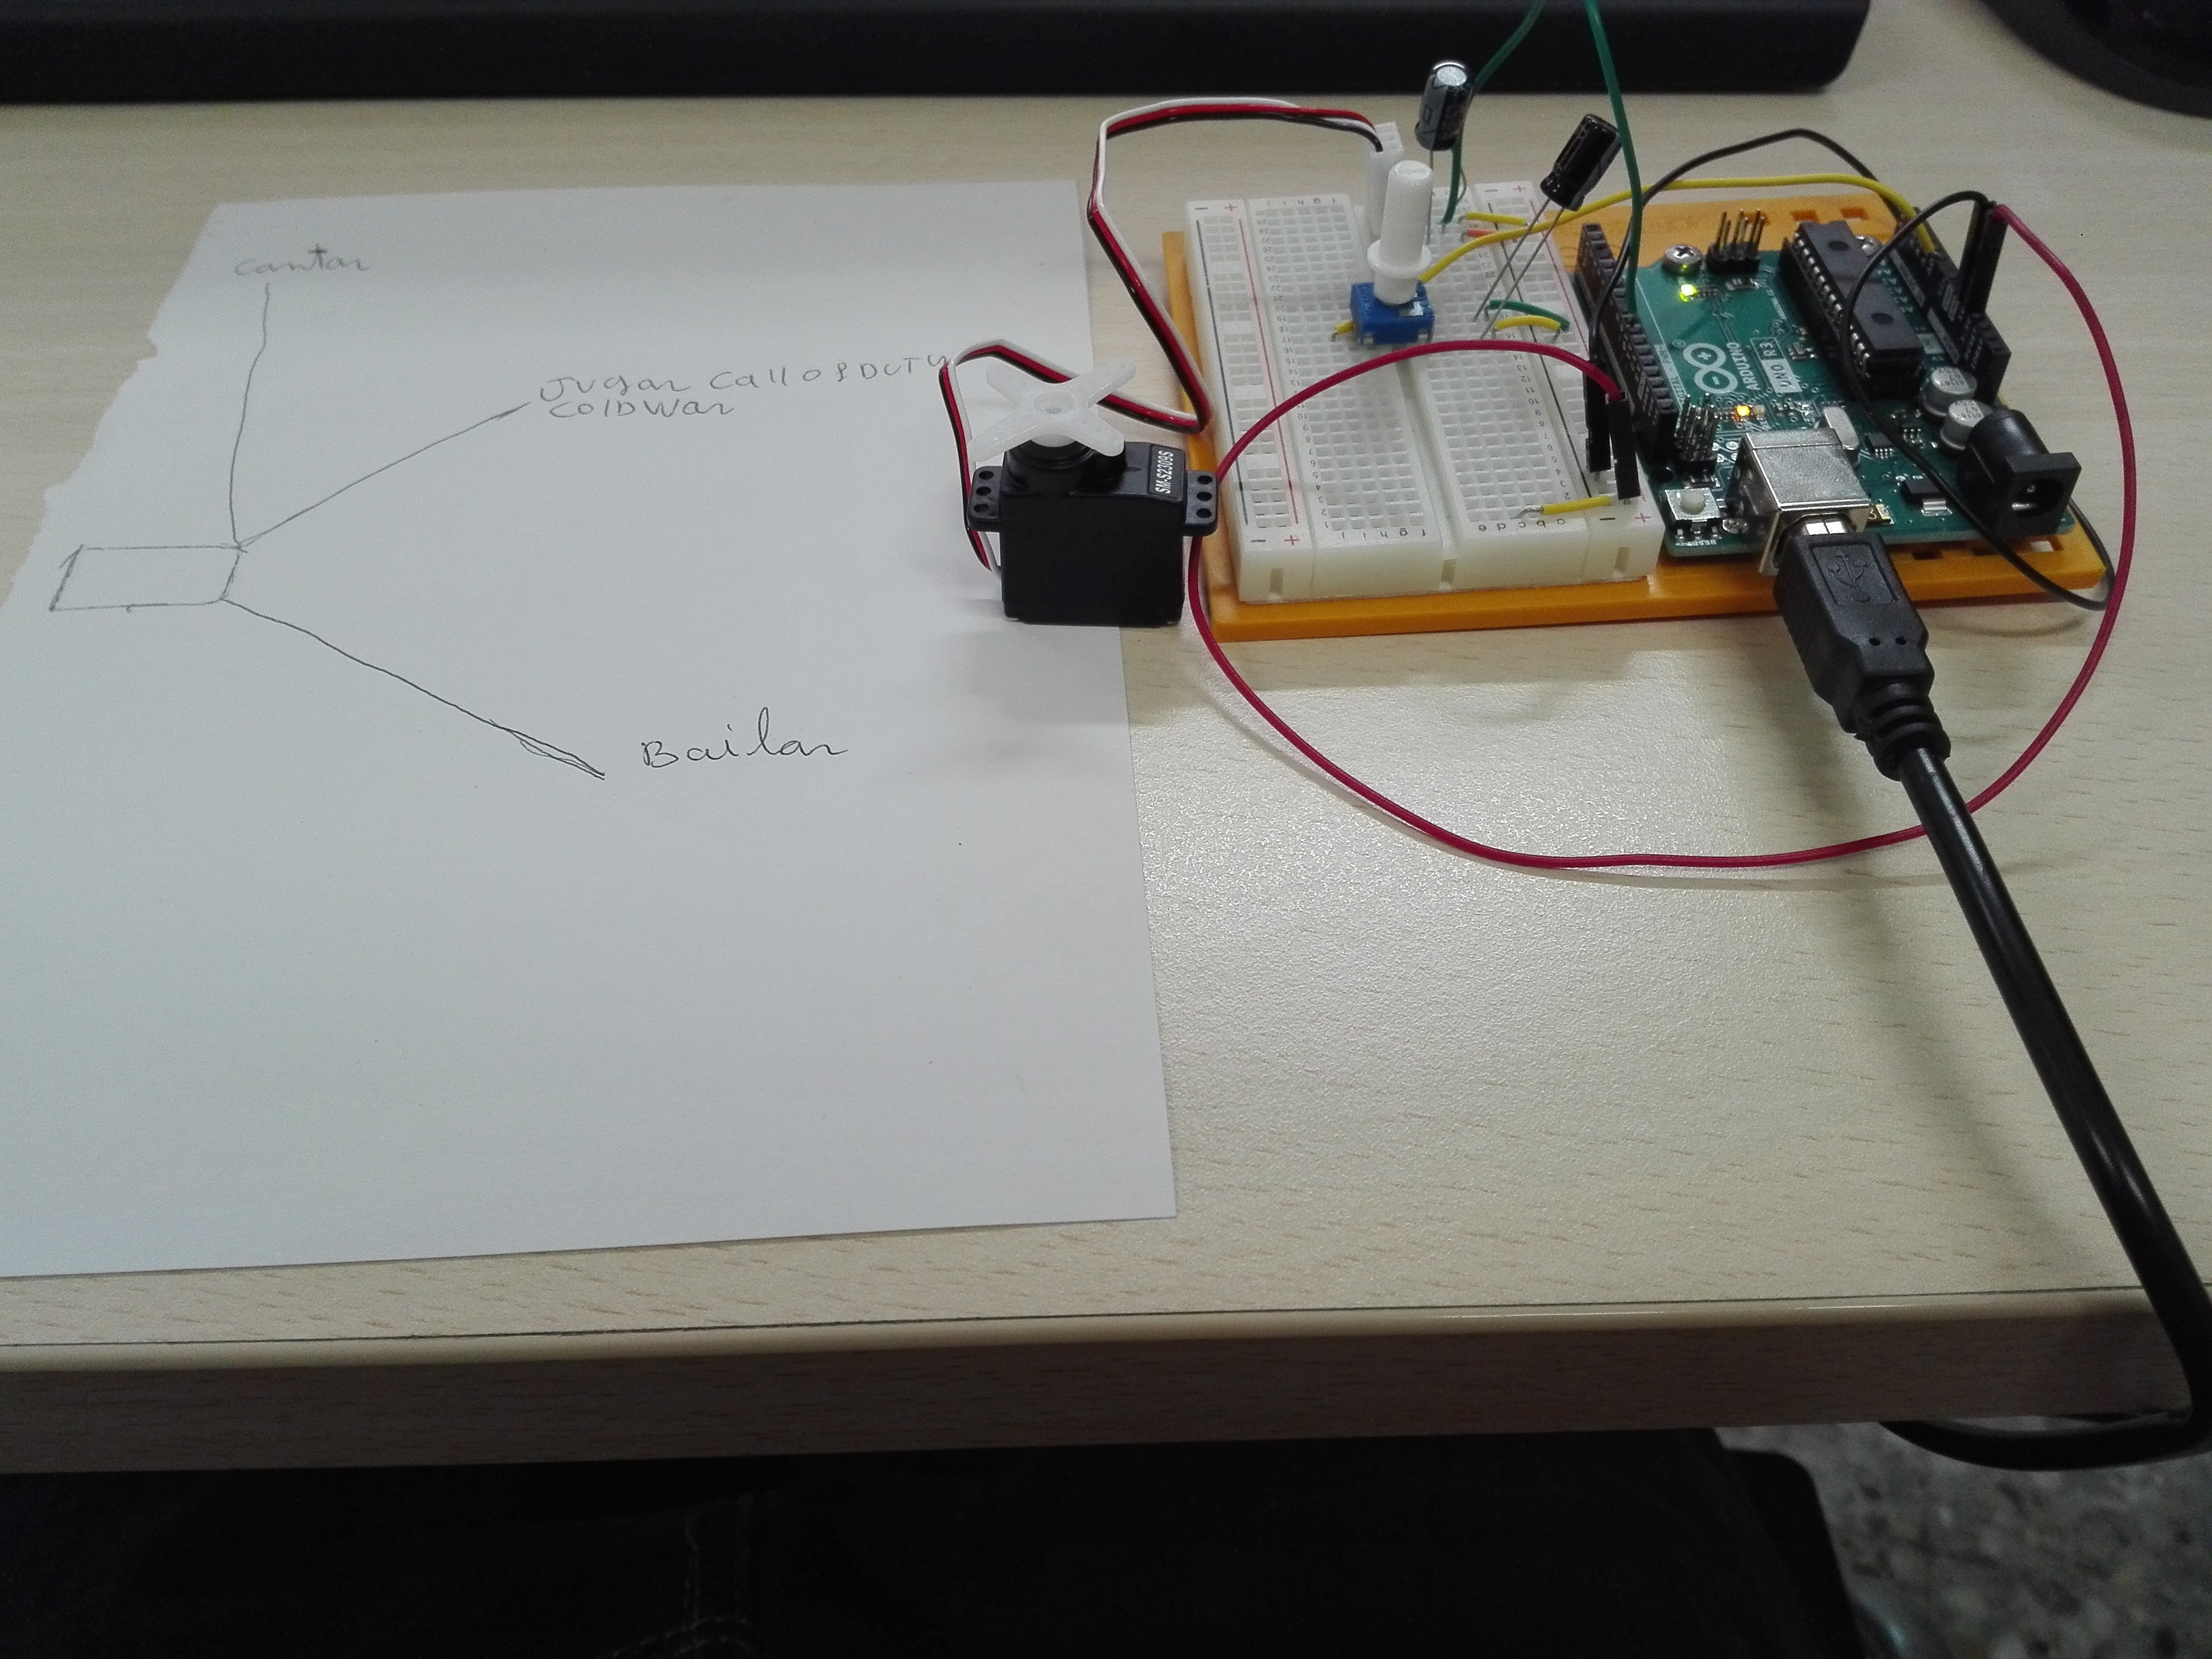 cantar
Jugar Call of DUTY
ColD War
Bailar
SM-S2309S
ARDUINO
UNO R3